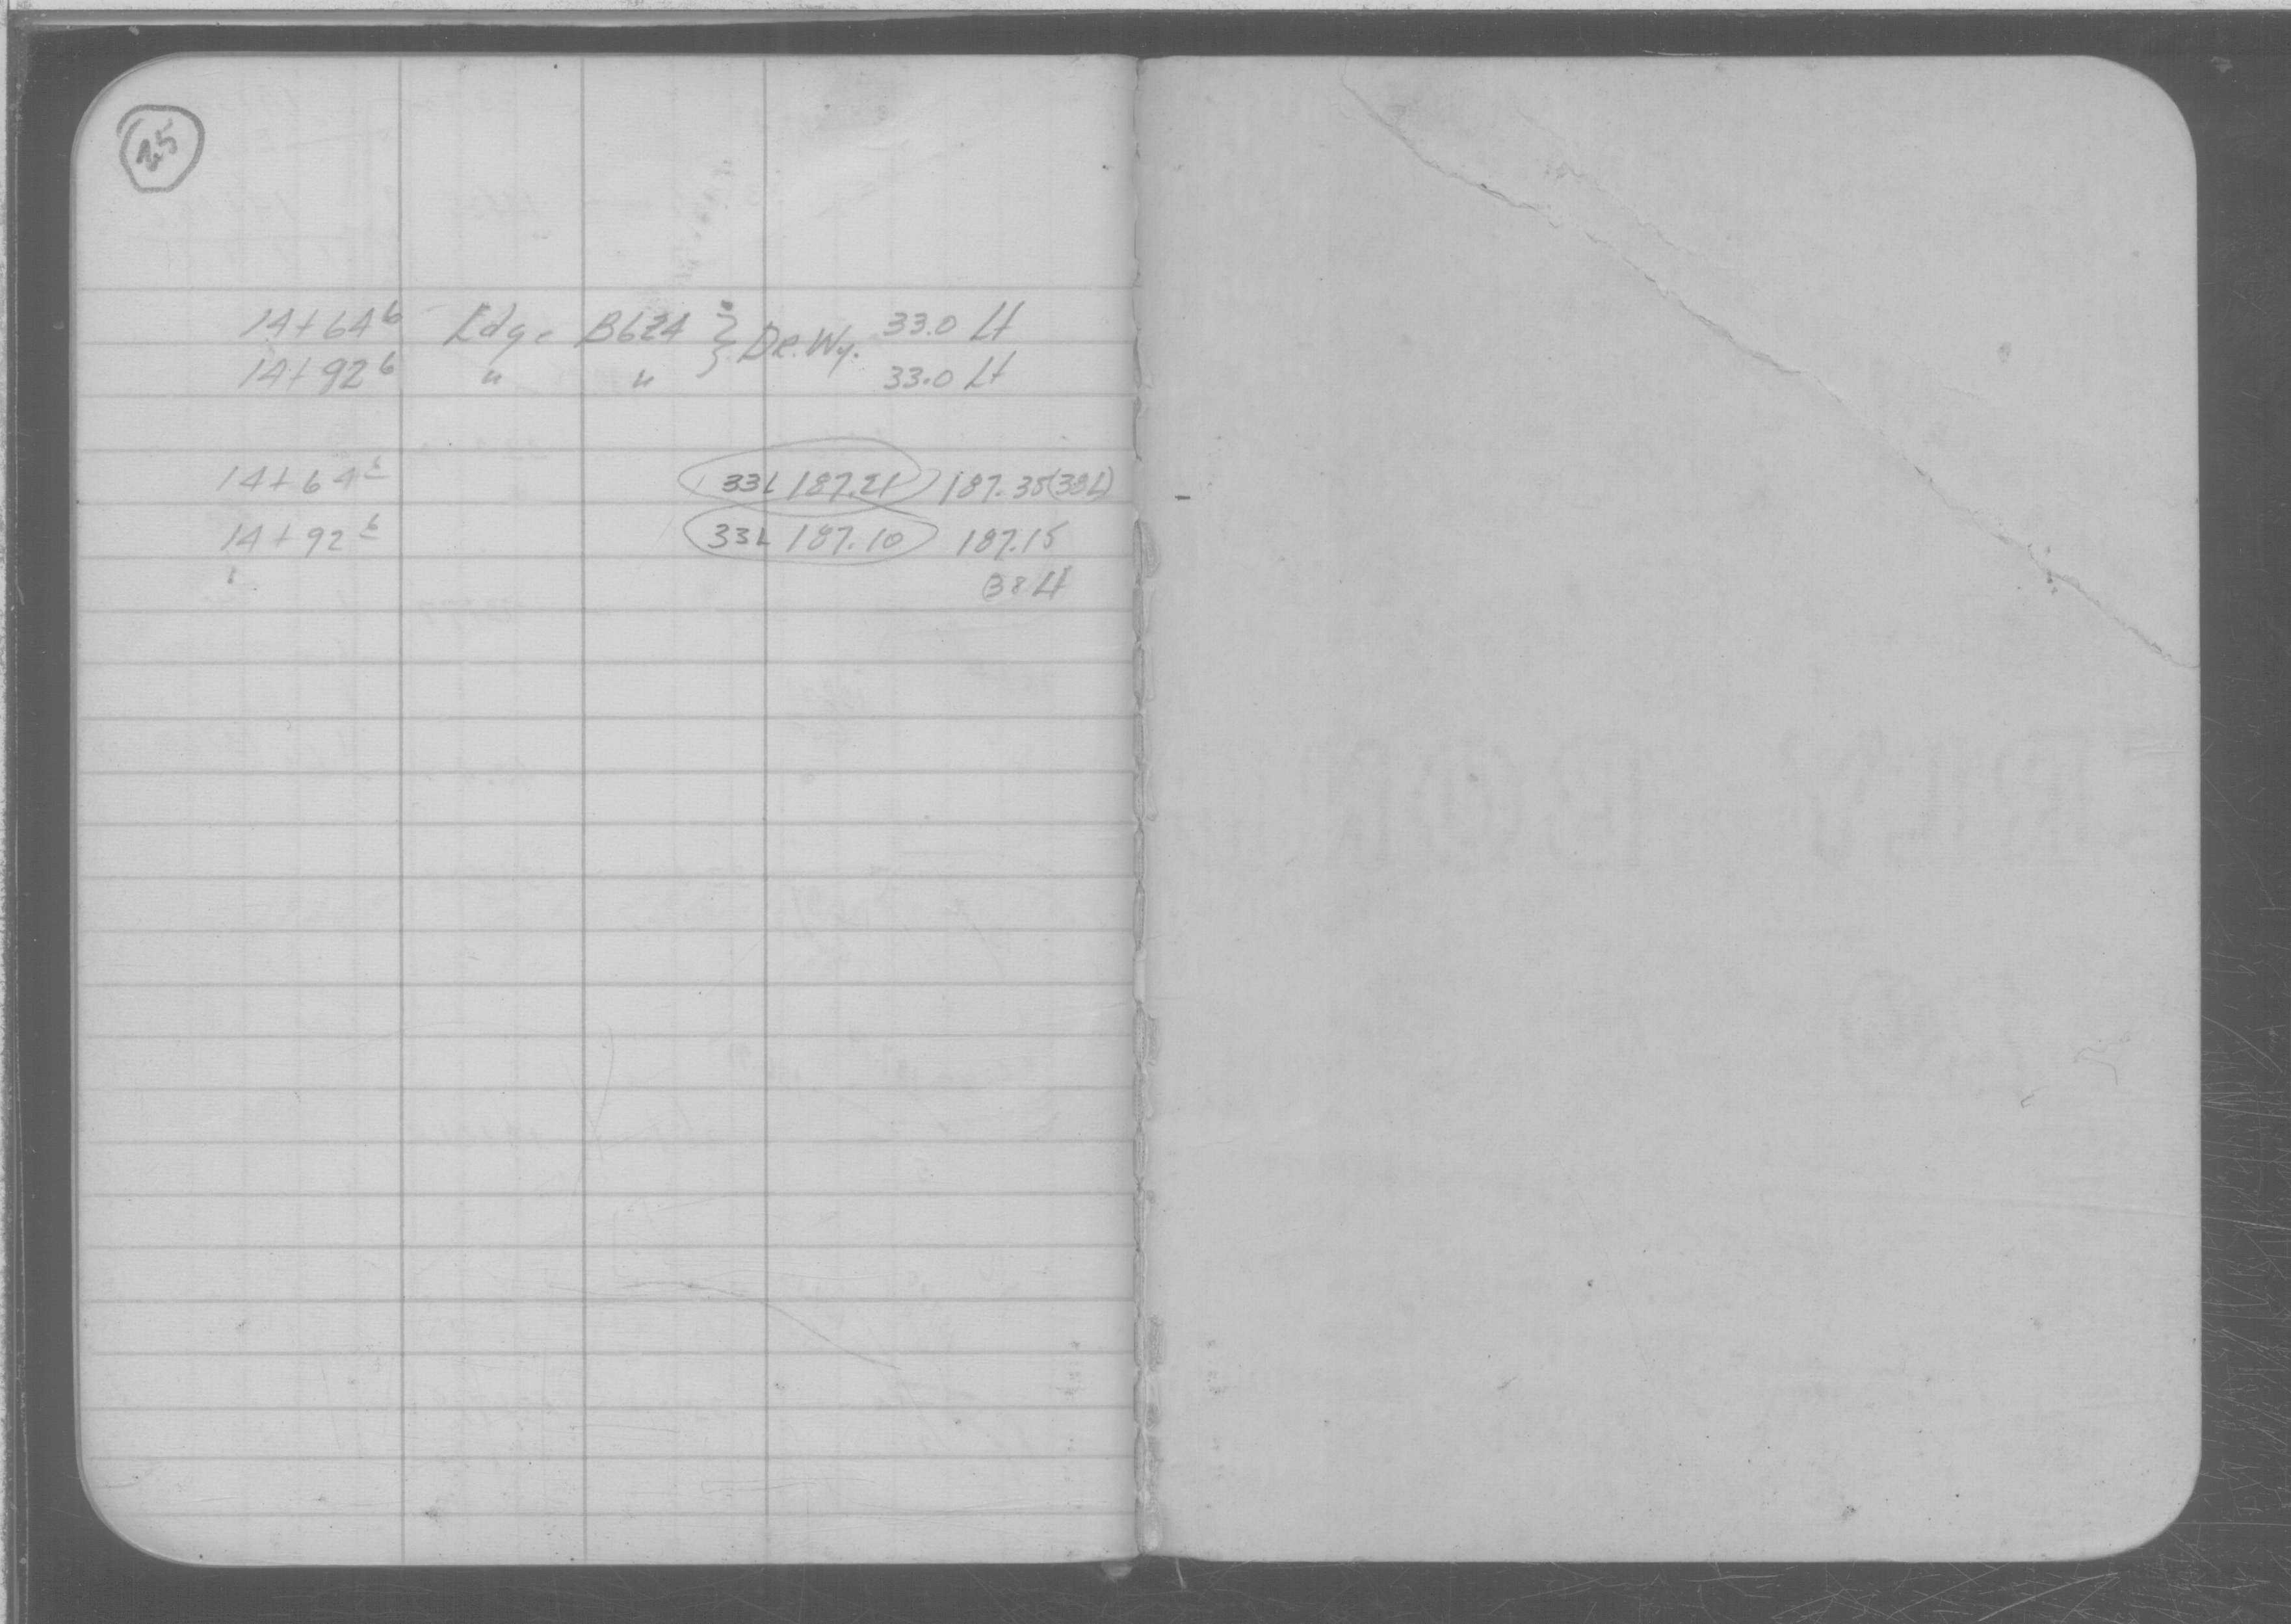 25
14+64⁶ Edge B624 } Dr.Wy. 33.0 Lt
14+92⁶ " " 33.0 Lt
14+64⁶ 33L 187.21 187.35 (38L)
14+92⁶ 33L 187.10 187.15
38 Lt